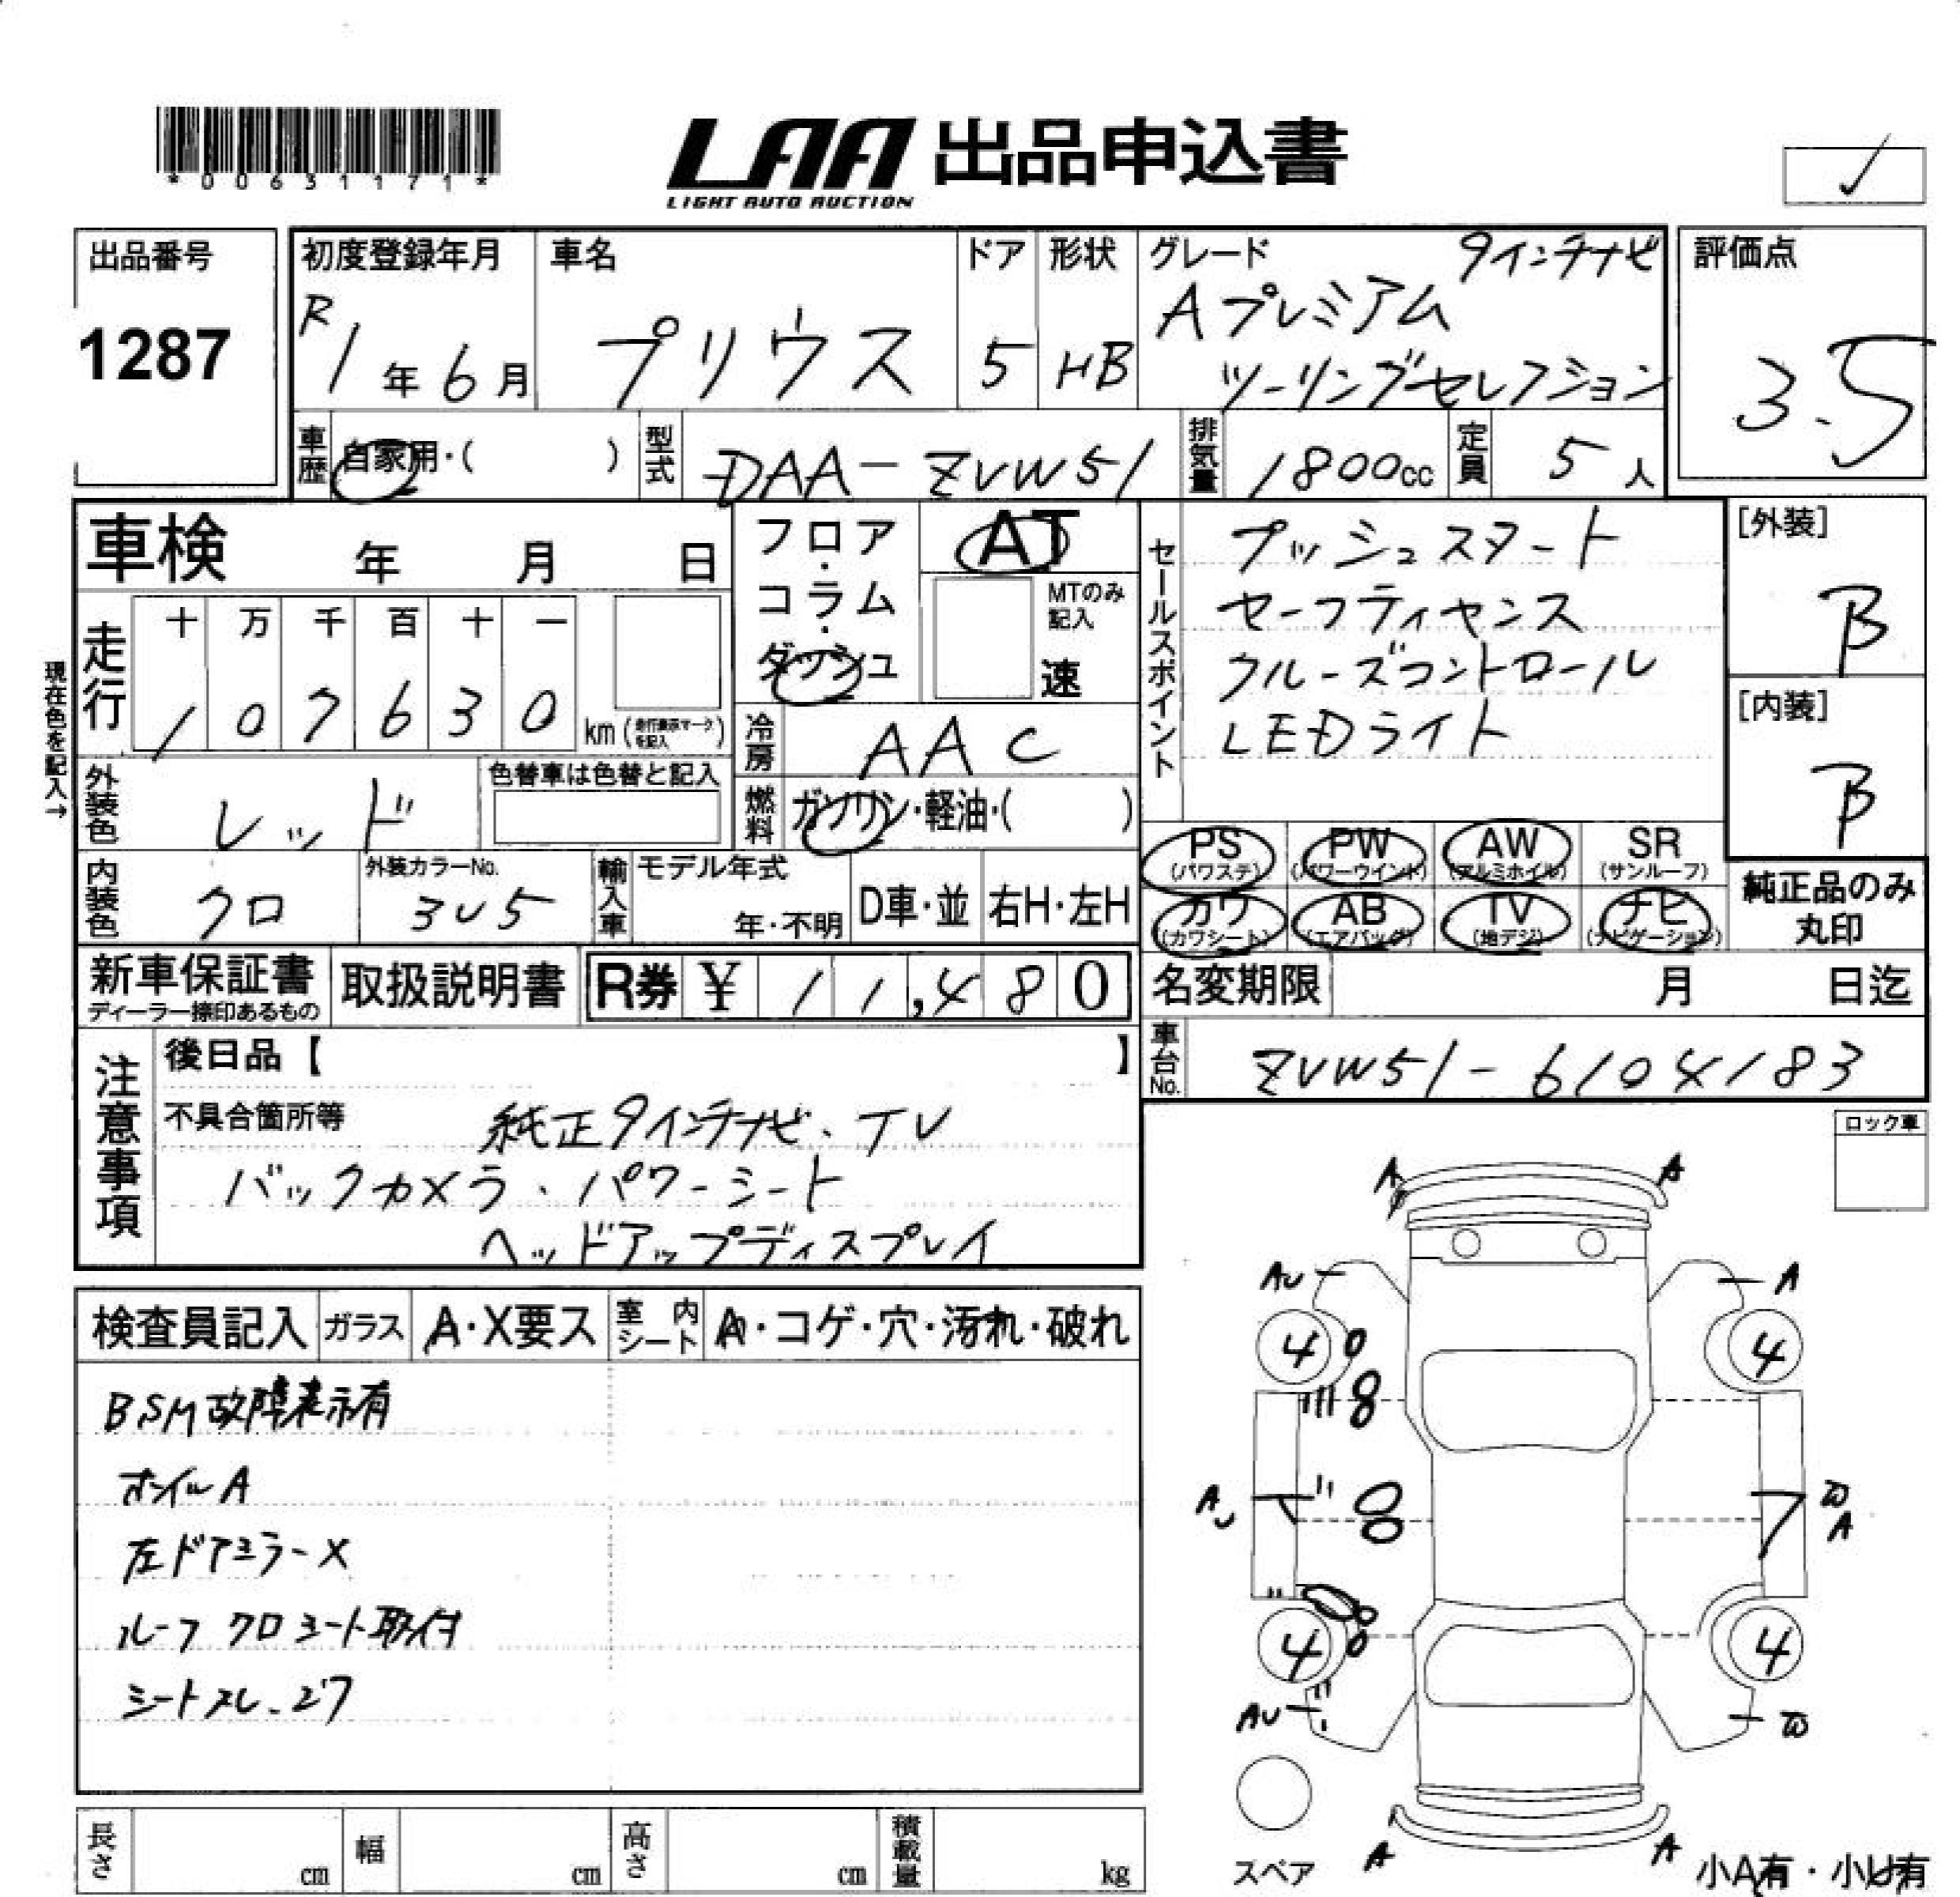 *00631171*
LAA 出品申込書
LIGHT AUTO AUCTION
出品番号
1287
初度登録年月
R1年6月
車名
プリウス
ドア
5
形状
HB
グレード
9インチナビ
Aプレミアム
ツーリングセレクション
評価点
3.5
車歴 自家用・( )
型式 DAA-ZVW51
排気量 1800cc
定員 5人
車検 年 月 日
フロア・コラム・ダッシュ
AT
MTのみ記入
速
セールスポイント
プッシュスタート
セーフティセンス
クルーズコントロール
LEDライト
[外装]
B
[内装]
B
現在色を記入→
走行
十 万 千 百 十 一
1 0 7 6 3 0
km (走行表示マークを記入)
冷房 AAC
外装色 レッド
色替車は色替と記入
燃料 ガソリン・軽油・( )
内装色 クロ
外装カラーNo.
3U5
輸入車 モデル年式
年・不明
D車・並
右H・左H
PS (パワステ)
PW (パワーウインド)
AW (アルミホイル)
SR (サンルーフ)
カワ (カワシート)
AB (エアバッグ)
TV (地デジ)
ナビ (ナビゲーション)
純正品のみ
丸印
新車保証書
ディーラー捺印あるもの
取扱説明書
R券 ¥ 11,480
名変期限 月 日迄
車台No. ZVW51-6104183
注意事項
後日品【 】
不具合箇所等
純正9インチナビ、TV
バックカメラ、パワーシート
ヘッドアップディスプレイ
ロック車
検査員記入
ガラス A・X要ス
室内シート A・コゲ・穴・汚れ・破れ
BSM故障表示有
ホイルA
左ドアミラーX
ルーフ クロシート取付
シートスレ、
A A
AU A
4 4
AU A
4 4
AU
A A
スペア
小A有・小U有
長さ cm
幅 cm
高さ cm
積載量 kg